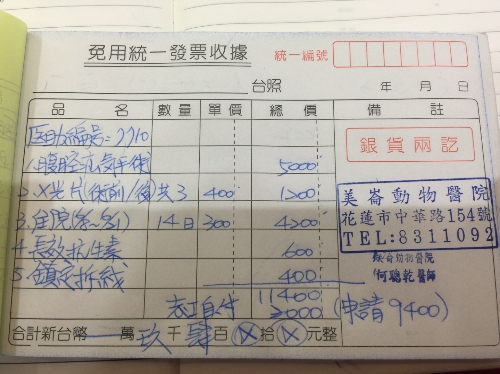 免用統一發票收據
統一編號
台照 年 月 日
品 名 數量 單價 總價 備註
編號:7710
1.腹腔 手術 5000
銀貨兩訖
2.X光片(術前/後)共3 400 1200
美崙動物醫院
花蓮市中華路154號
TEL:8311092
3.住院 14日 300 4200
4.長效抗生素 600
美崙動物醫院
何聰乾醫師
5.鎮定拆線 400
11400
志工自付 2000 (申請9400)
合計新台幣 萬玖千肆百ⓧ拾ⓧ元整